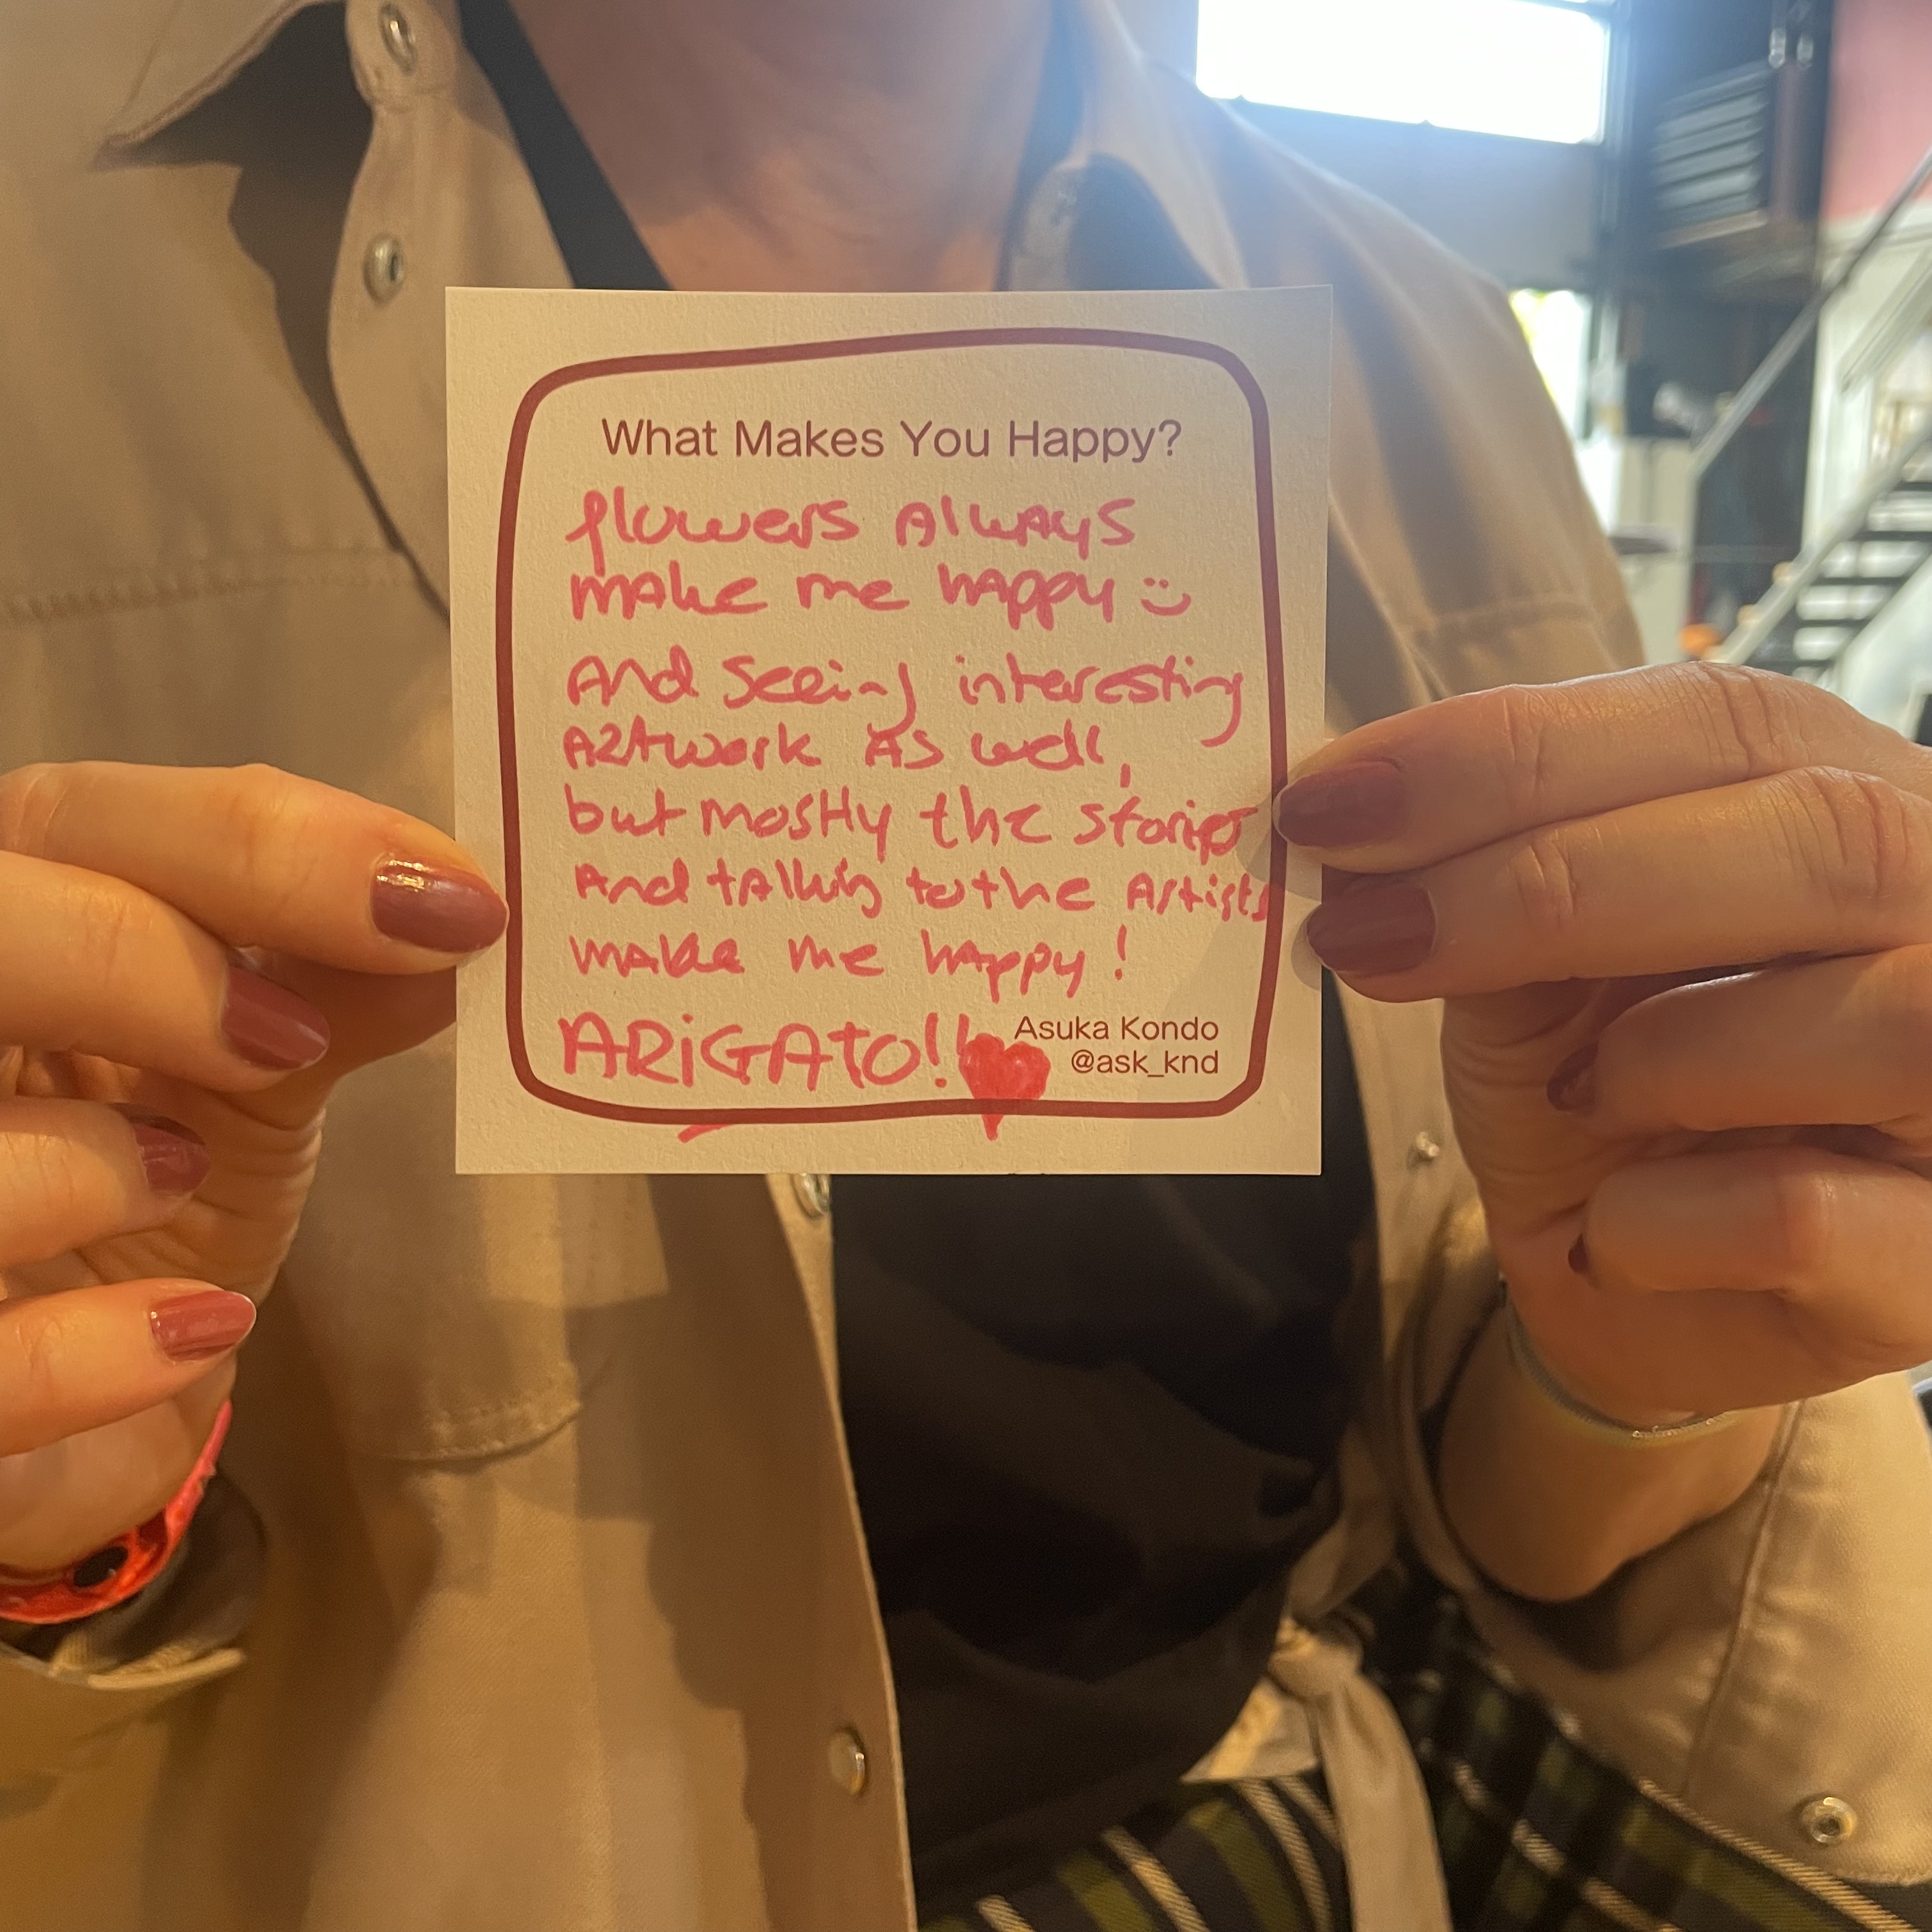 What Makes You Happy?
flowers Always
make me happy :)
And seeing interesting
Artwork As well,
but mostly the stories
And talking to the Artists
make me happy!
ARiGATO!!
Asuka Kondo
@ask_knd